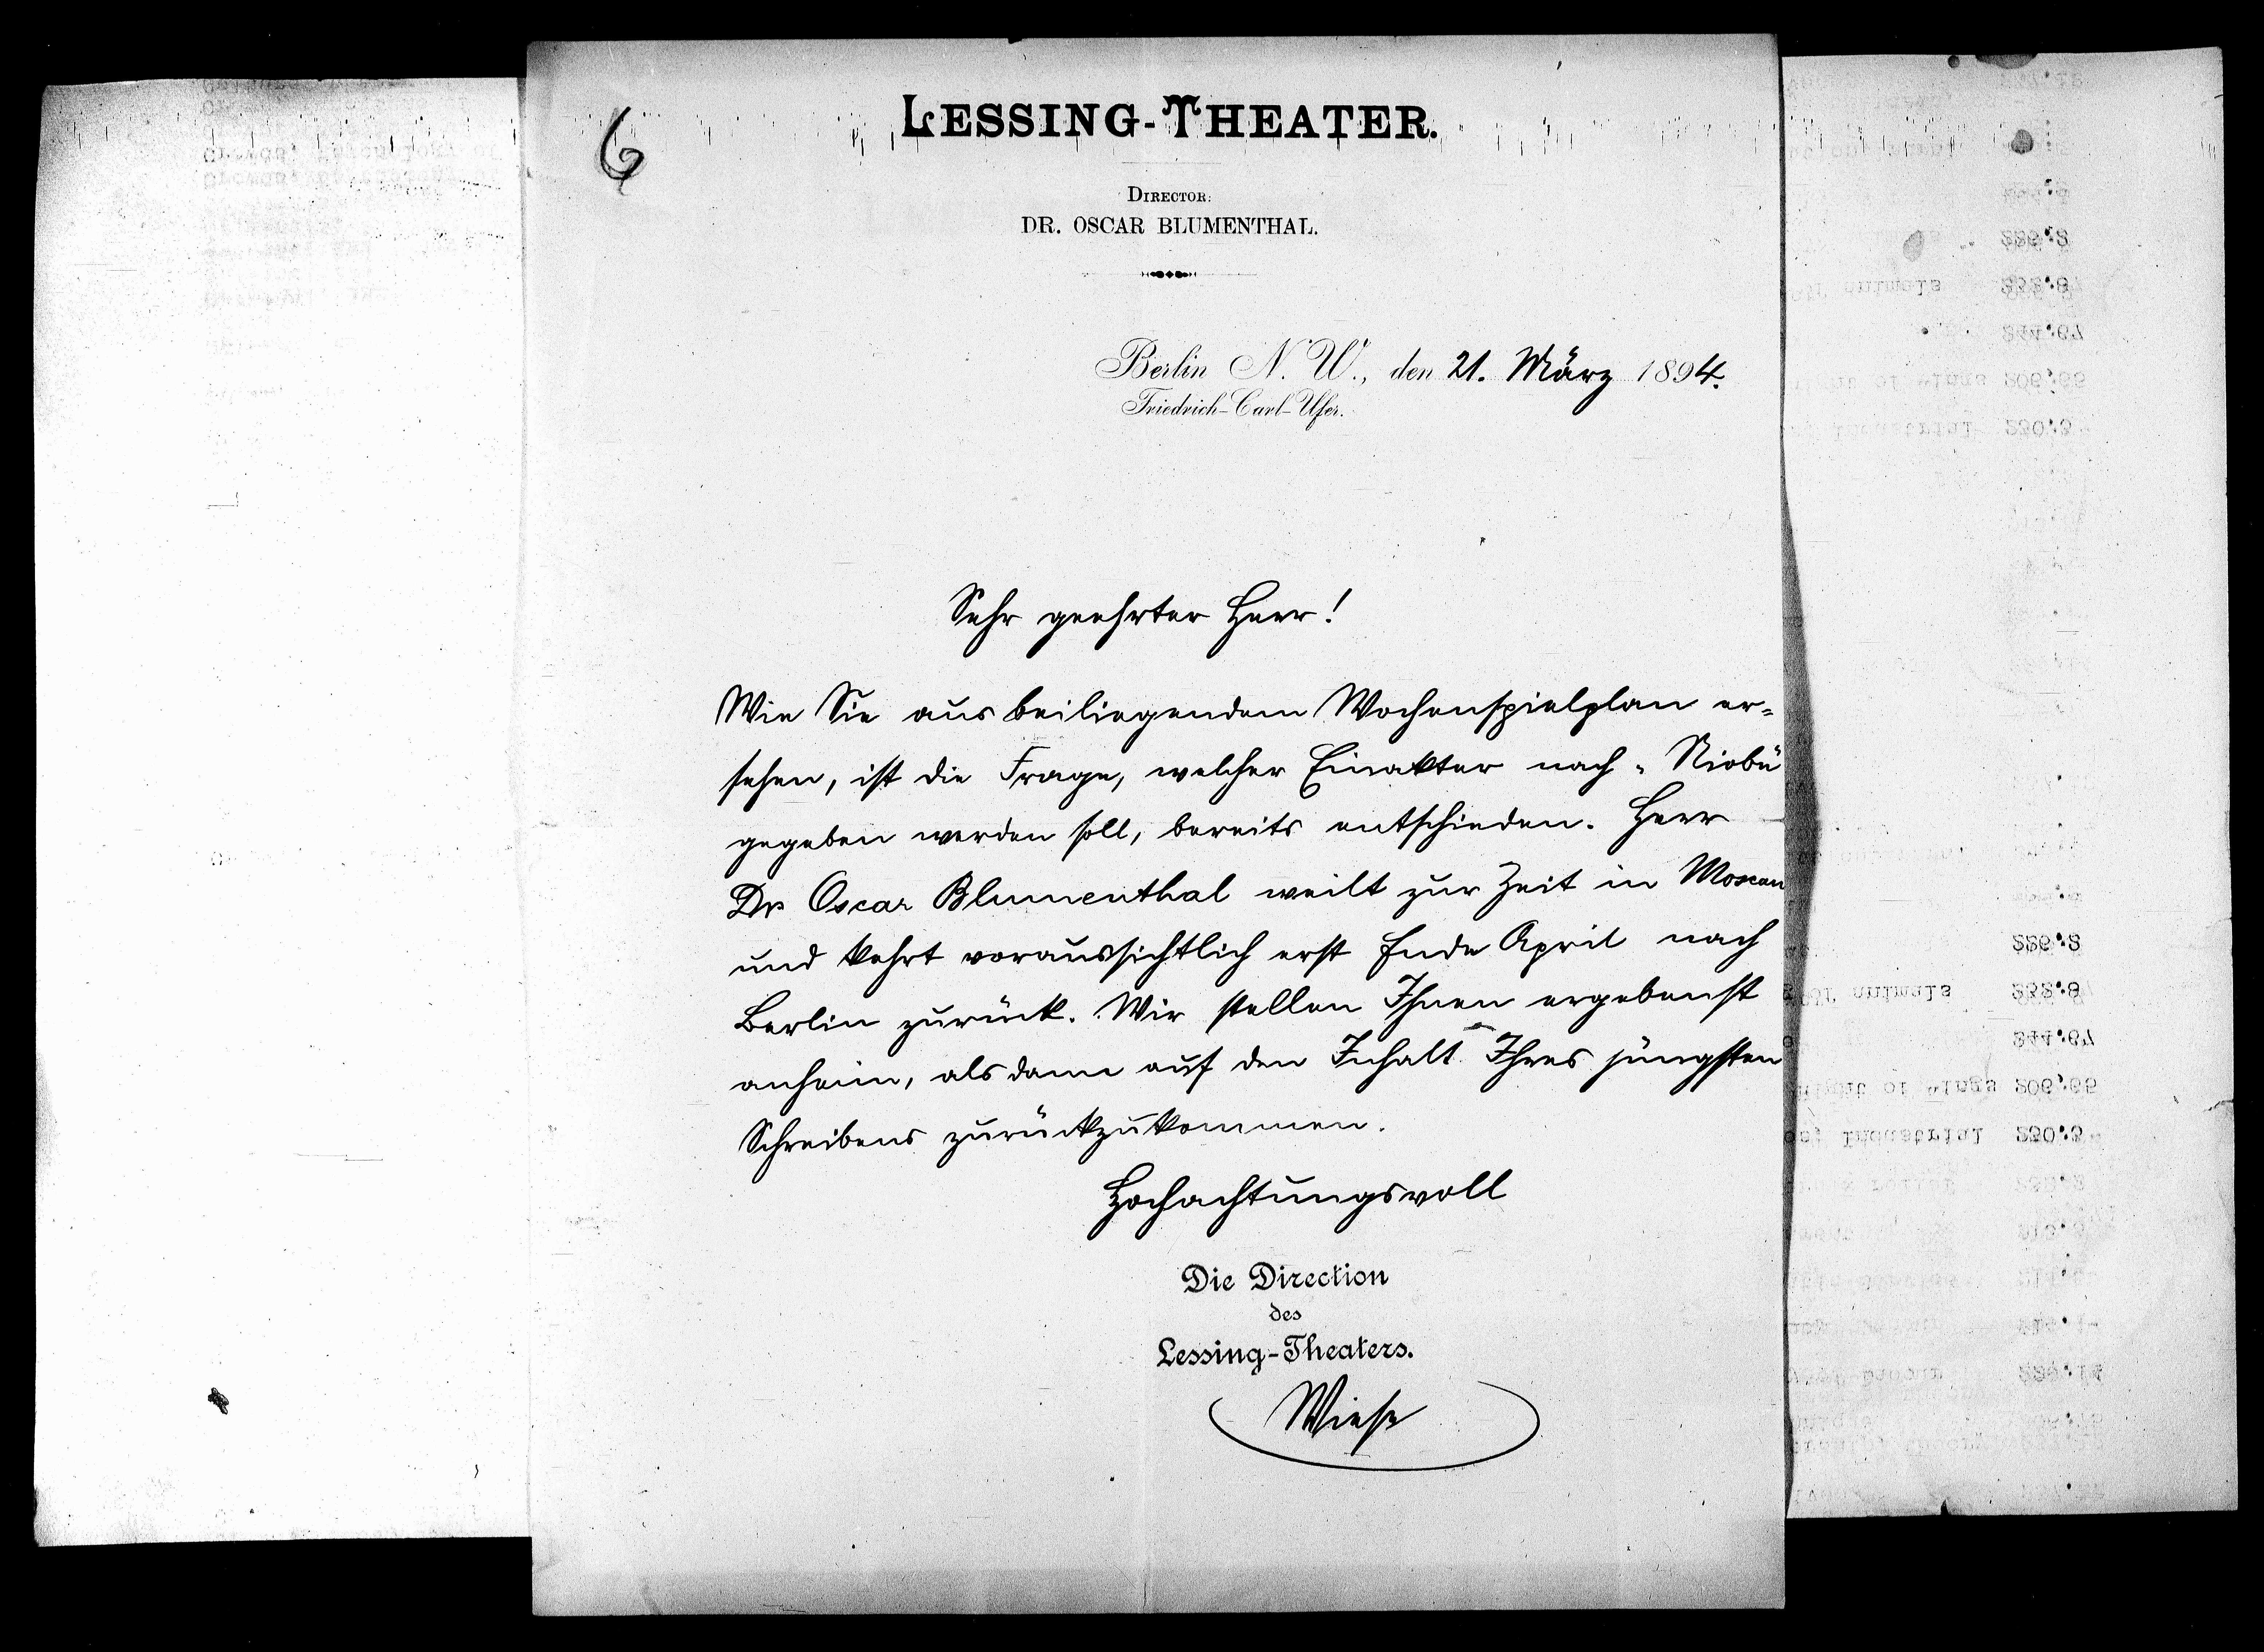 6
LESSING-THEATER.
DIRECTOR:
DR. OSCAR BLUMENTHAL.
Berlin N. W., den 21. März 1894.
Friedrich-Carl-Ufer.
Sehr geehrter Herr!
Wie Sie aus beiliegendem Wochenspielplan er-
sehen, ist die Frage, welcher Einakter nach „Niobe"
gegeben werden soll, bereits entschieden. Herr
Dr Oscar Blumenthal weilt zur Zeit in Moscau
und kehrt voraussichtlich erst Ende April nach
Berlin zurück. Wir stellen Ihnen ergebenst
anheim, alsdann auf den Inhalt Ihres jüngsten
Schreibens zurückzukommen.
Hochachtungsvoll
Die Direction
des
Lessing-Theaters.
Wiese